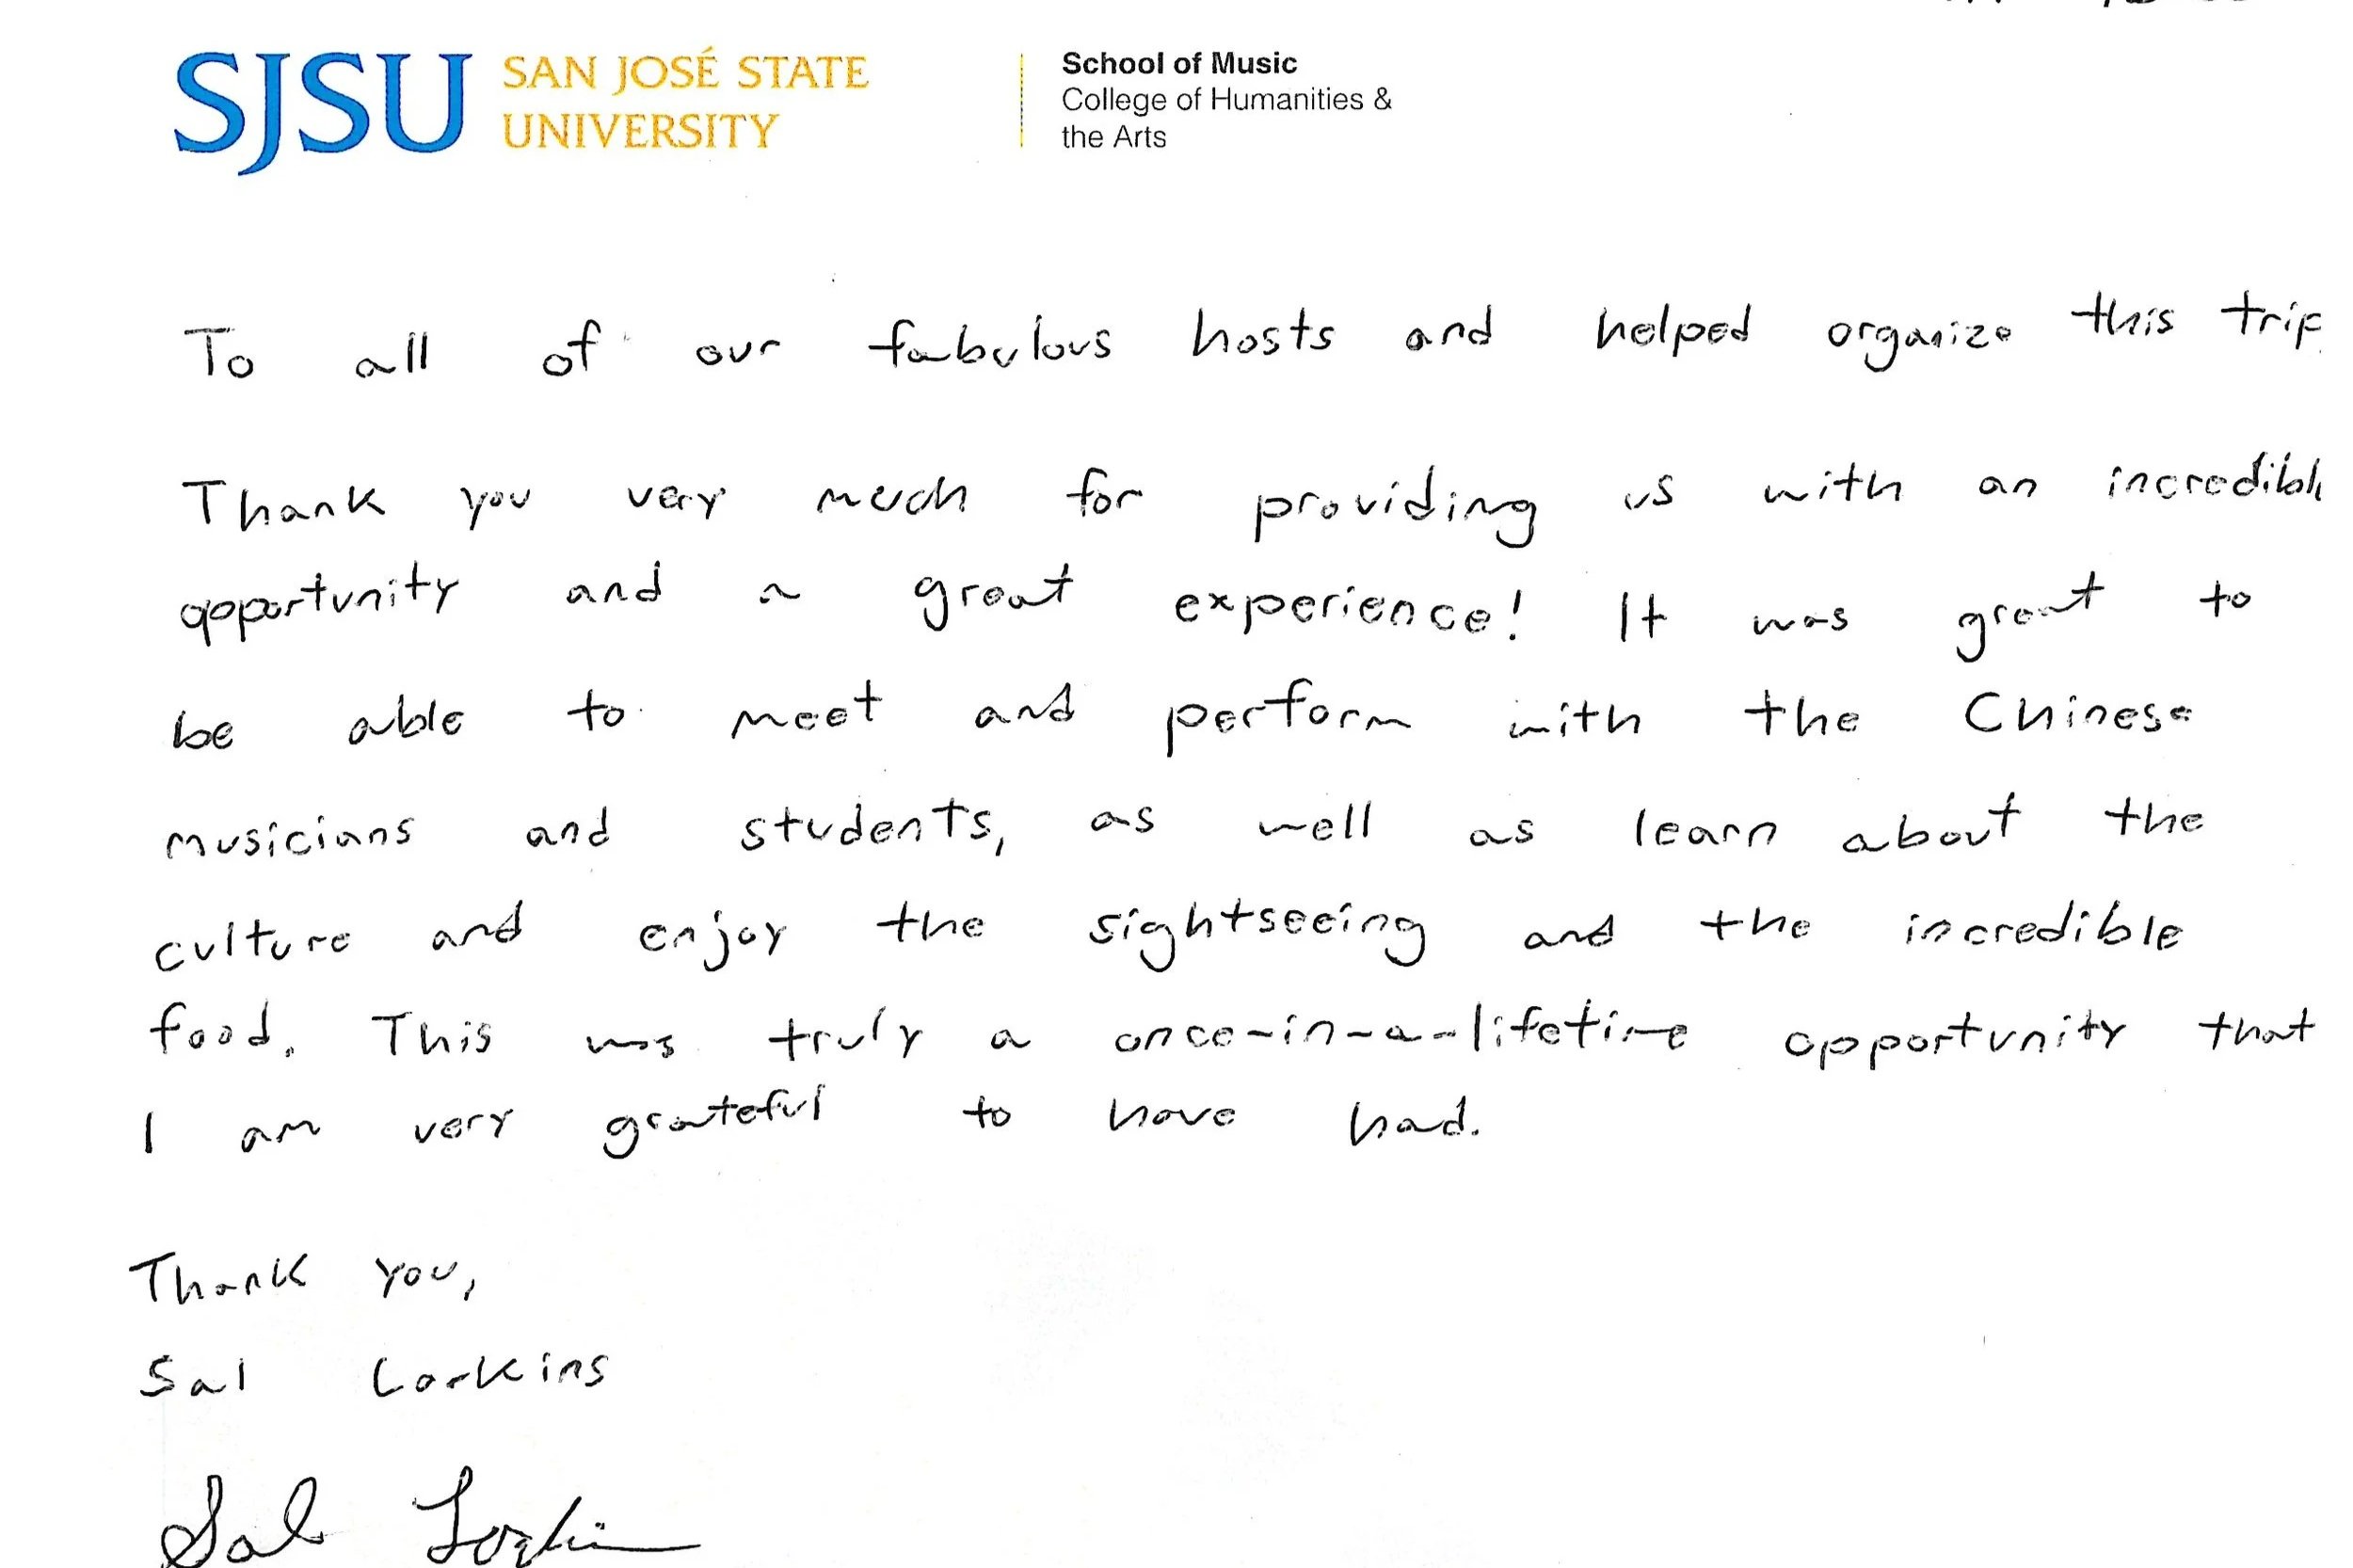 SJSU SAN JOSÉ STATE
UNIVERSITY
School of Music
College of Humanities &
the Arts
To all of our fabulous hosts and helped organize this trip
Thank you very much for providing us with an incredibl
opportunity and a great experience! It was great to
be able to meet and perform with the Chinese
musicians and students, as well as learn about the
culture and enjoy the sightseeing and the incredible
food. This was truly a once-in-a-lifetime opportunity that
I am very grateful to have had.
Thank you,
Sal Lorkins
Sal